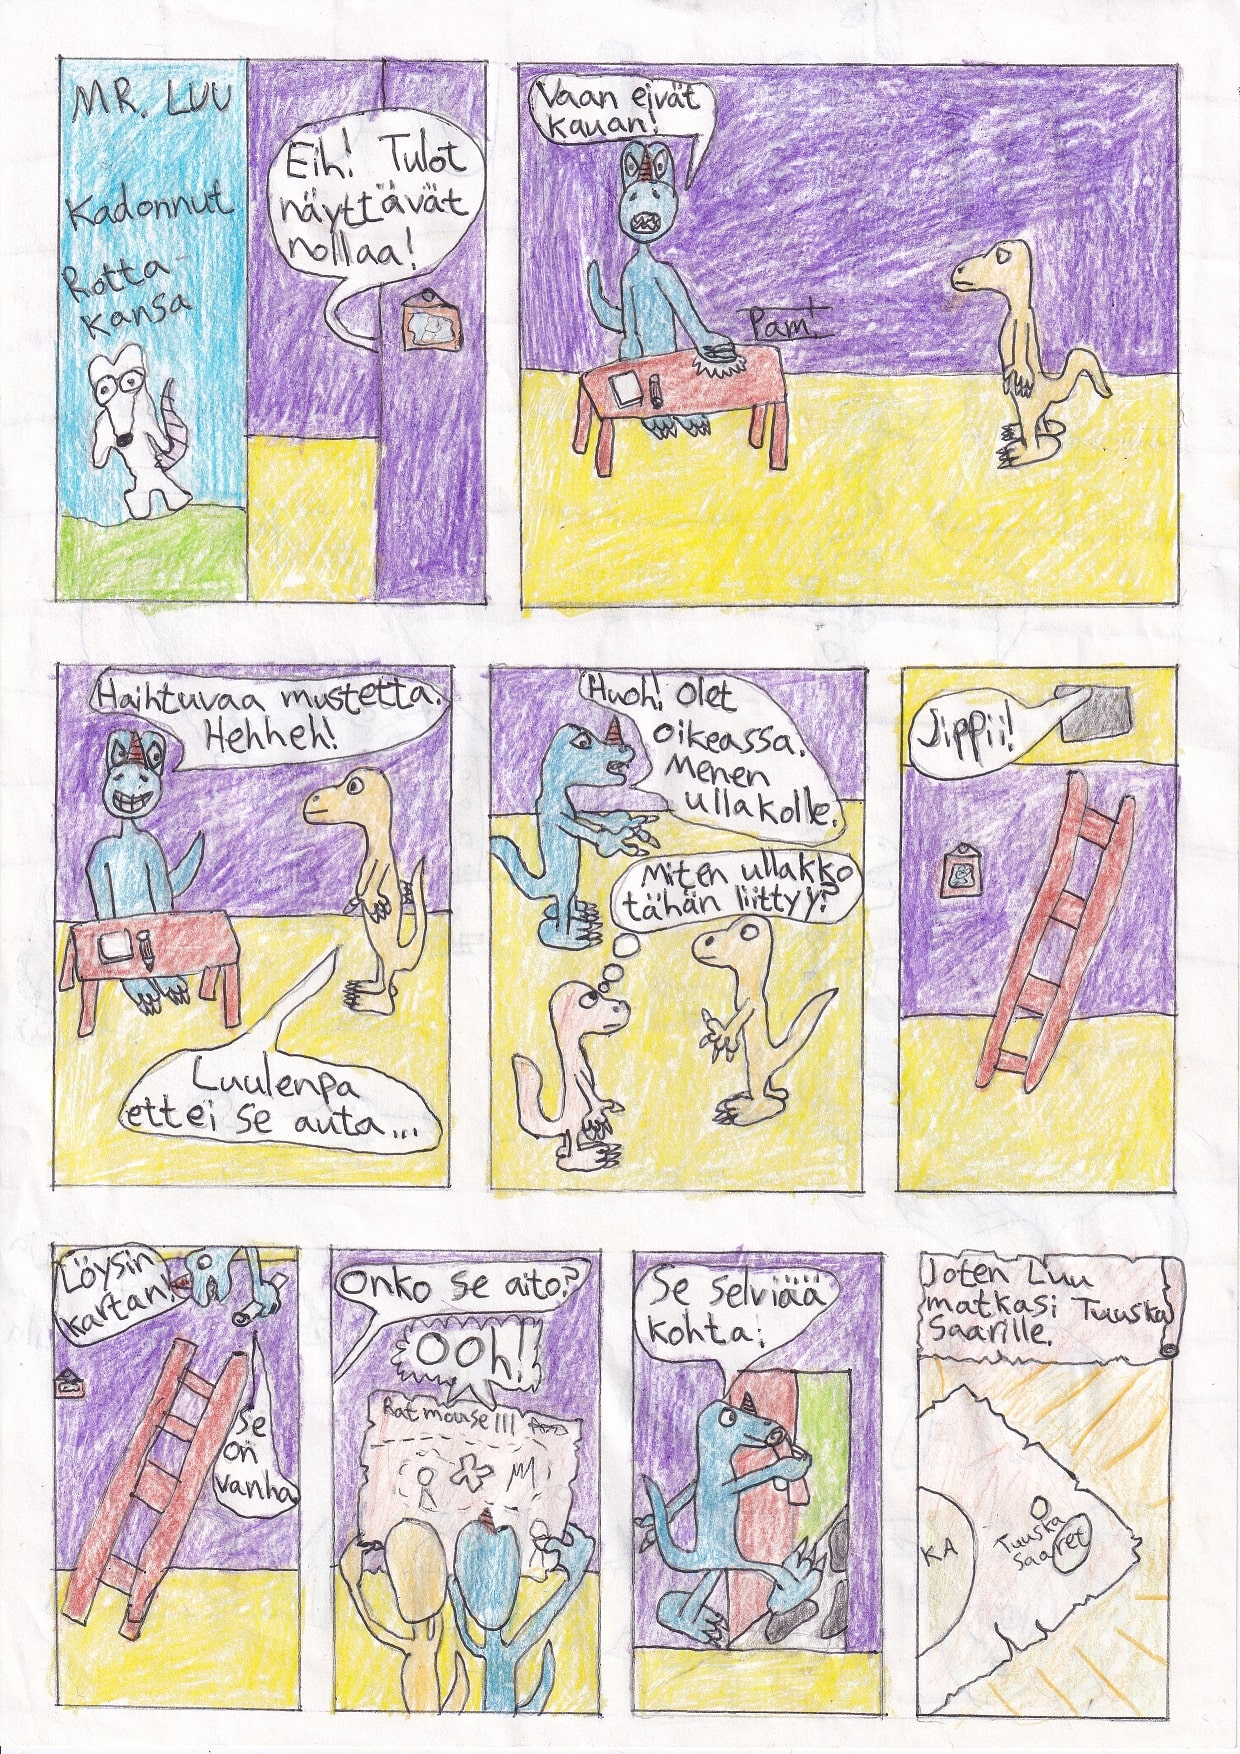 MR. LUU
Kadonnut
Rotta-
kansa
Eih! Tulot
näyttävät
nollaa!
Vaan eivät
kauan!
Pam!
Haihtuvaa mustetta.
Hehheh!
Luulenpa
ettei se auta...
Huoh! Olet
oikeassa.
Menen
ullakolle.
Miten ullakko
tähän liittyy?
Jippii!
Löysin
kartan!
Se
on
vanha
Onko se aito?
Ooh!
Rat mouse III
Se selviää
kohta.
Joten Luu
matkasi Tuuska
Saarille.
KA
Tuuska
Saaret